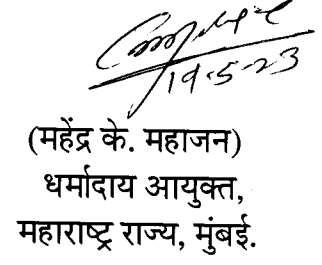 19-5-23
(महेंद्र के. महाजन)
धर्मादाय आयुक्त,
महाराष्ट्र राज्य, मुंबई.